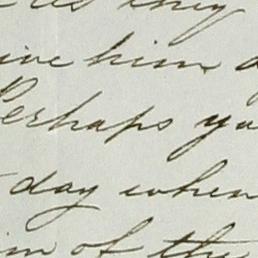 they
ive him a
Perhaps yo
day when
im of the